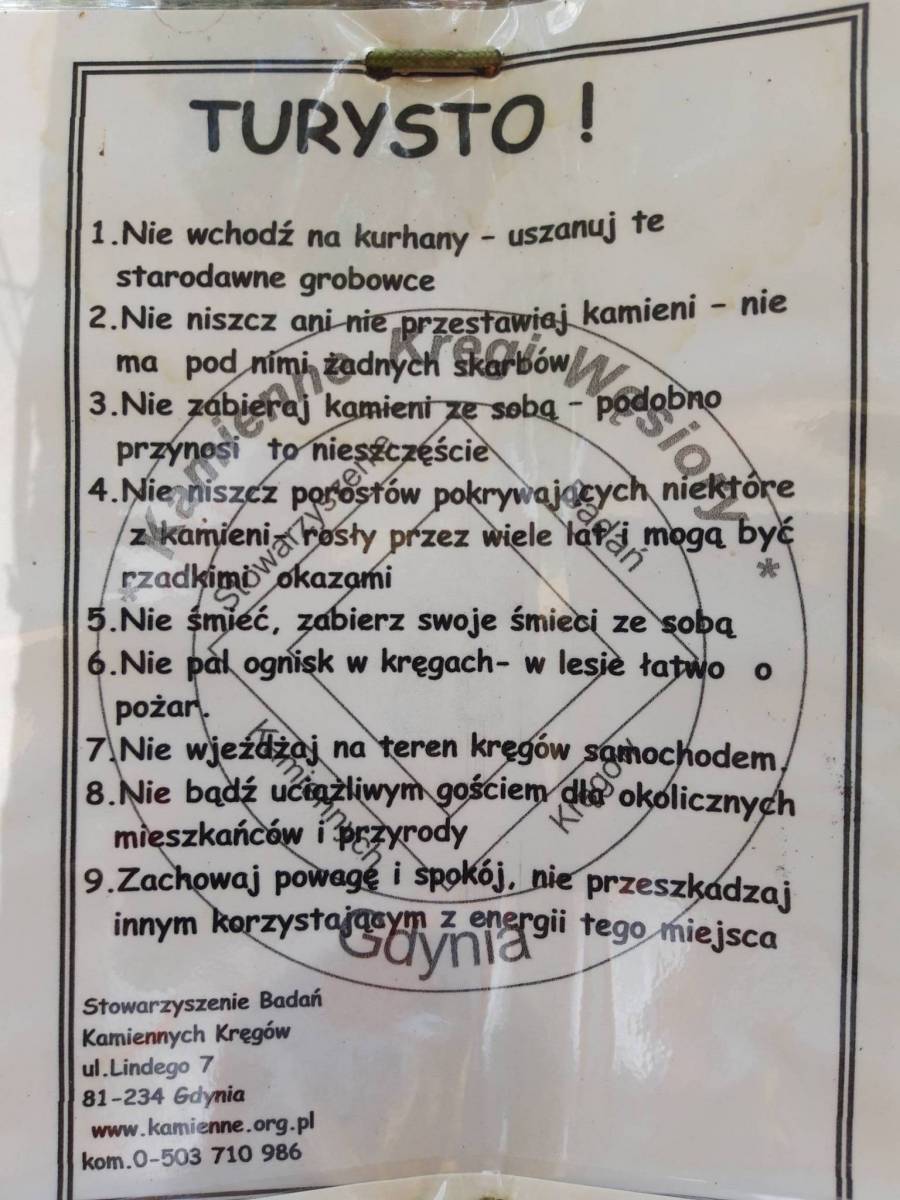 TURYSTO !
1.Nie wchodź na kurhany - uszanuj te
starodawne grobowce
2.Nie niszcz ani nie przestawiaj kamieni - nie
ma pod nimi żadnych skarbów
3.Nie zabieraj kamieni ze sobą - podobno
przynosi to nieszczęście
4.Nie niszcz porostów pokrywających niektóre
z kamieni- rosły przez wiele lat i mogą być
rzadkimi okazami
5.Nie śmieć, zabierz swoje śmieci ze sobą
6.Nie pal ognisk w kręgach- w lesie łatwo o
pożar.
7.Nie wjeżdżaj na teren kręgów samochodem.
8.Nie bądź uciążliwym gościem dla okolicznych
mieszkańców i przyrody
9.Zachowaj powagę i spokój, nie przeszkadzaj
innym korzystającym z energii tego miejsca
* Kamienne Kręgi Węsiory *
Stowarzyszenie
Badań
Kamiennych
Kręgów
Gdynia
Stowarzyszenie Badań
Kamiennych Kręgów
ul.Lindego 7
81-234 Gdynia
www.kamienne.org.pl
kom.0-503 710 986